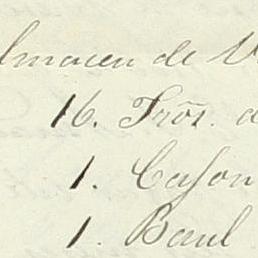 lmacen de V
16. Frõs. d
1. Cason
1. Baul